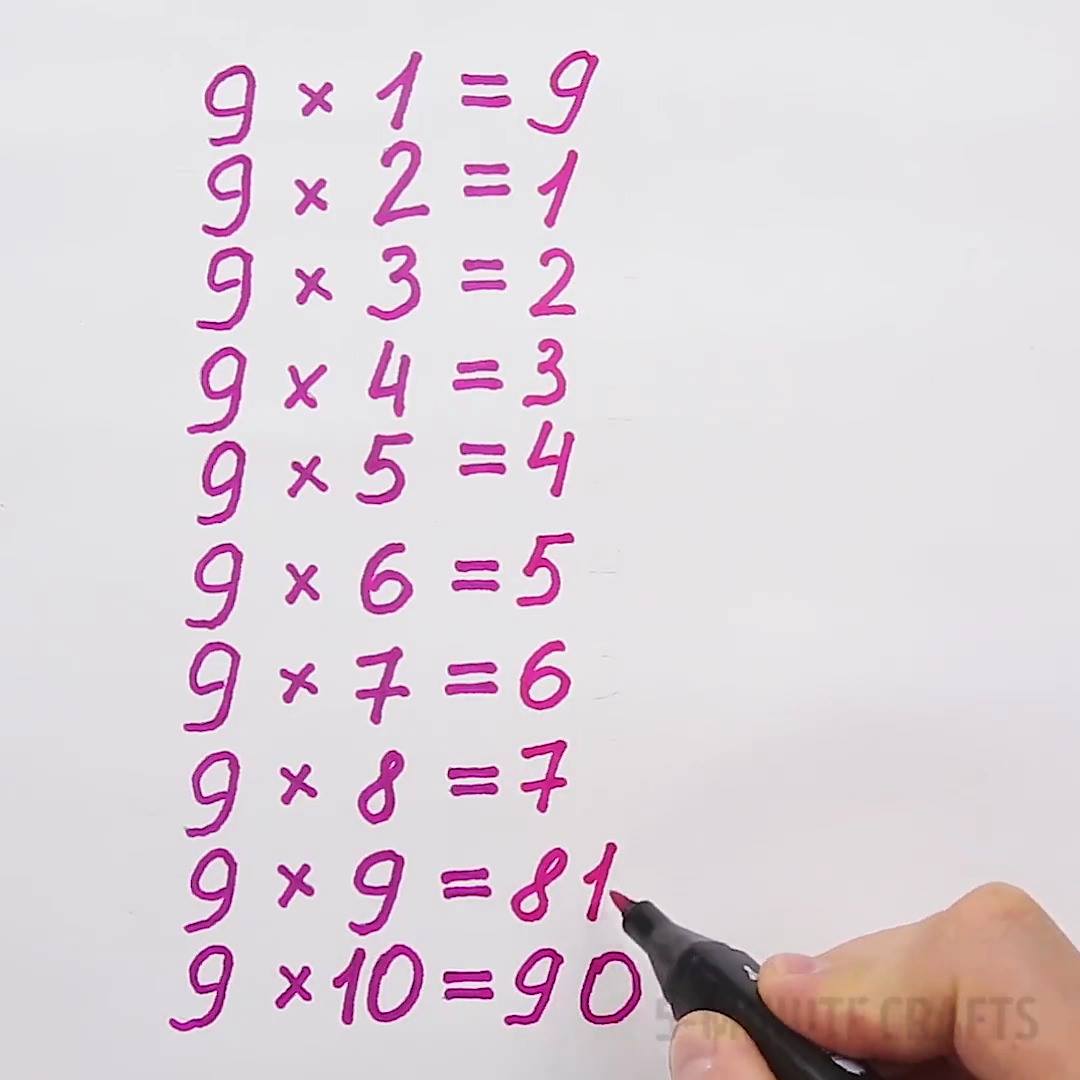 9 × 1 = 9
9 × 2 = 1
9 × 3 = 2
9 × 4 = 3
9 × 5 = 4
9 × 6 = 5
9 × 7 = 6
9 × 8 = 7
9 × 9 = 81
9 × 10 = 90
5-MINUTE CRAFTS